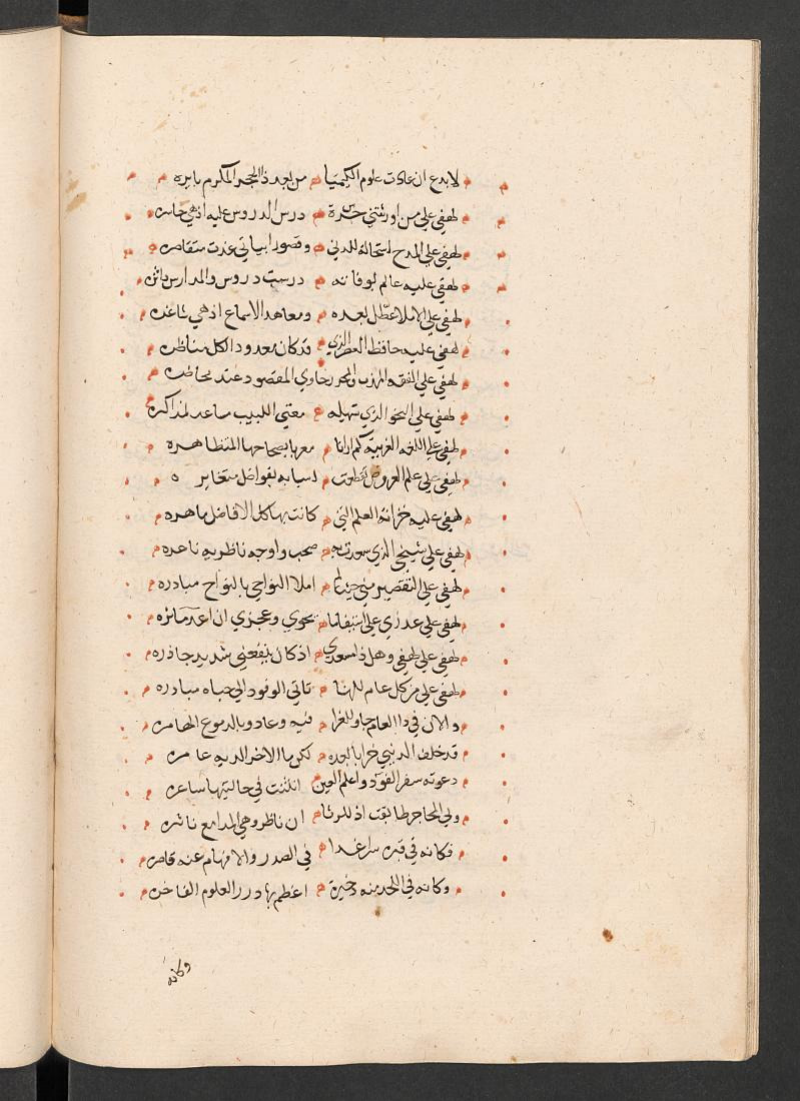 لابدع ان عادت علوم الكيميا من بعد ذا الجد المكرم بايره
لهفي علي من اورثتني حسرة درس الدروس عليه اذ هي خاسره
لهفي علي المدح استحاله للدني وقصور ابياتي غدت متقاصره
لهفي عليه عالم لوفاته درست دروس والمدارس داثره
لهفي علي الاملا عطل بعده ومعاهد الاسماع اذ هي شاغره
لهفي عليه حافظ العصر الذي قد كان معدودا لكل مناظره
لهفي علي الفقه المهذب والمحرر حاوي المقصود عند محاضره
لهفي علي النحو الذي تسهيله مغني اللبيب مساعد لمذاكره
لهفي علي اللغة الغريبة كم ارانا معربا بصحاحها المتظاهره
لهفي علي علم العروض تقطعت اسبابه بفواصل متغايره
لهفي عليه خزانة العلم التي كانت بها كل الافاضل ماهره
لهفي علي شيخي الذي سعدت به صحب واوجه ناظريه ناضره
لهفي علي التقصير مني حيث لم املا النواحي بالنواح مبادره
لهفي علي عذري علي استيفاء ما تحوي وعجزي ان اعد مآثره
لهفي علي لهفي وهل ذا مسعدي اذ كان ينفعني شديد محاذره
لهفي علي من كل عام للهنا تاتي الوفود الي حماه مبادره
والان في ذا العام جاو للعزا فيه وعادو بالدموع الهامره
قد خلف الدنيي خرابا بعده لكن ما الاخري لديه عامره
وكانه في قبره سر غدا في الصدر والافهام عنه قاصره
وكانه في اللحد منه ذخيرة اعظم بها درر العلوم الفاخره
وكانه